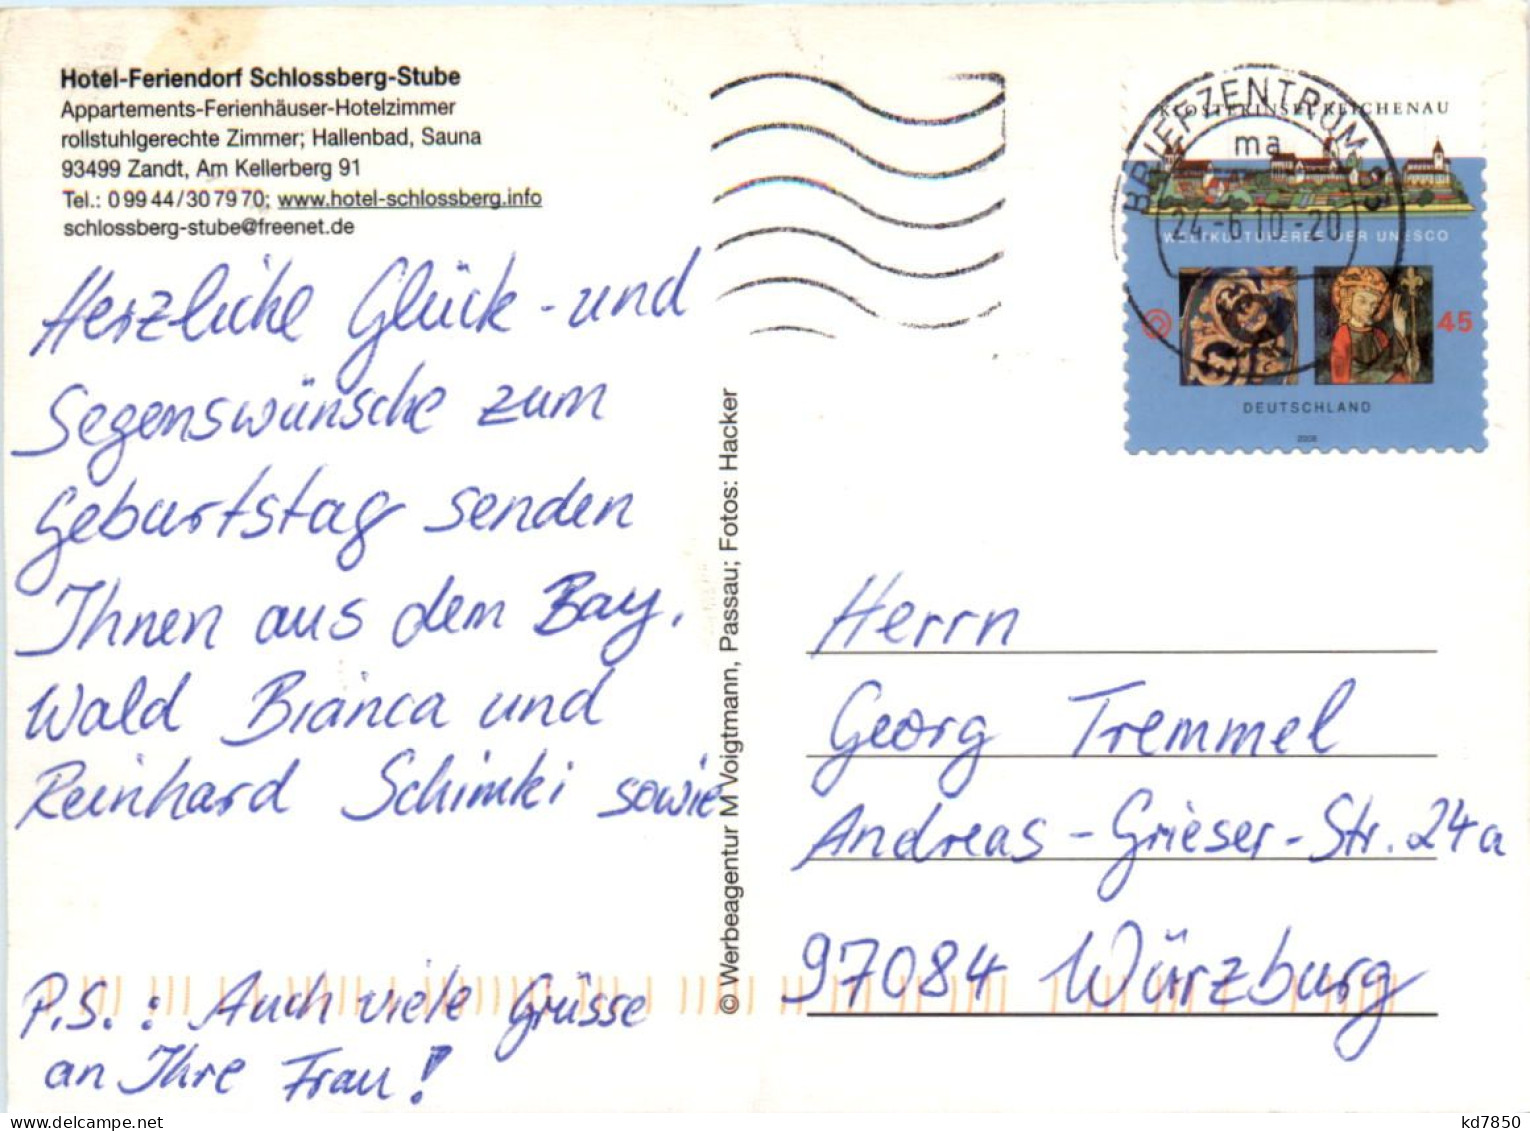 Hotel-Feriendorf Schlossberg-Stube
Appartements-Ferienhäuser-Hotelzimmer
rollstuhlgerechte Zimmer; Hallenbad, Sauna
93499 Zandt, Am Kellerberg 91
Tel.: 0 99 44 / 30 79 70; www.hotel-schlossberg.info
schlossberg-stube@freenet.de
Herzliche Glück - und
Segenswünsche zum
Geburtstag senden
Ihnen aus dem Bay.
Wald Bianca und
Reinhard Schimki sowie
P.S. : Auch viele Grüsse
an Ihre Frau!
© Werbeagentur M Voigtmann, Passau; Fotos: Hacker
KLOSTERINSEL REICHENAU
WELTKULTURERBE DER UNESCO
45
DEUTSCHLAND
2008
BRIEFZENTRUM 93
ma
24.-6.10-20
Herrn
Georg Tremmel
Andreas-Grieser-Str. 24a
97084 Würzburg
kd7850